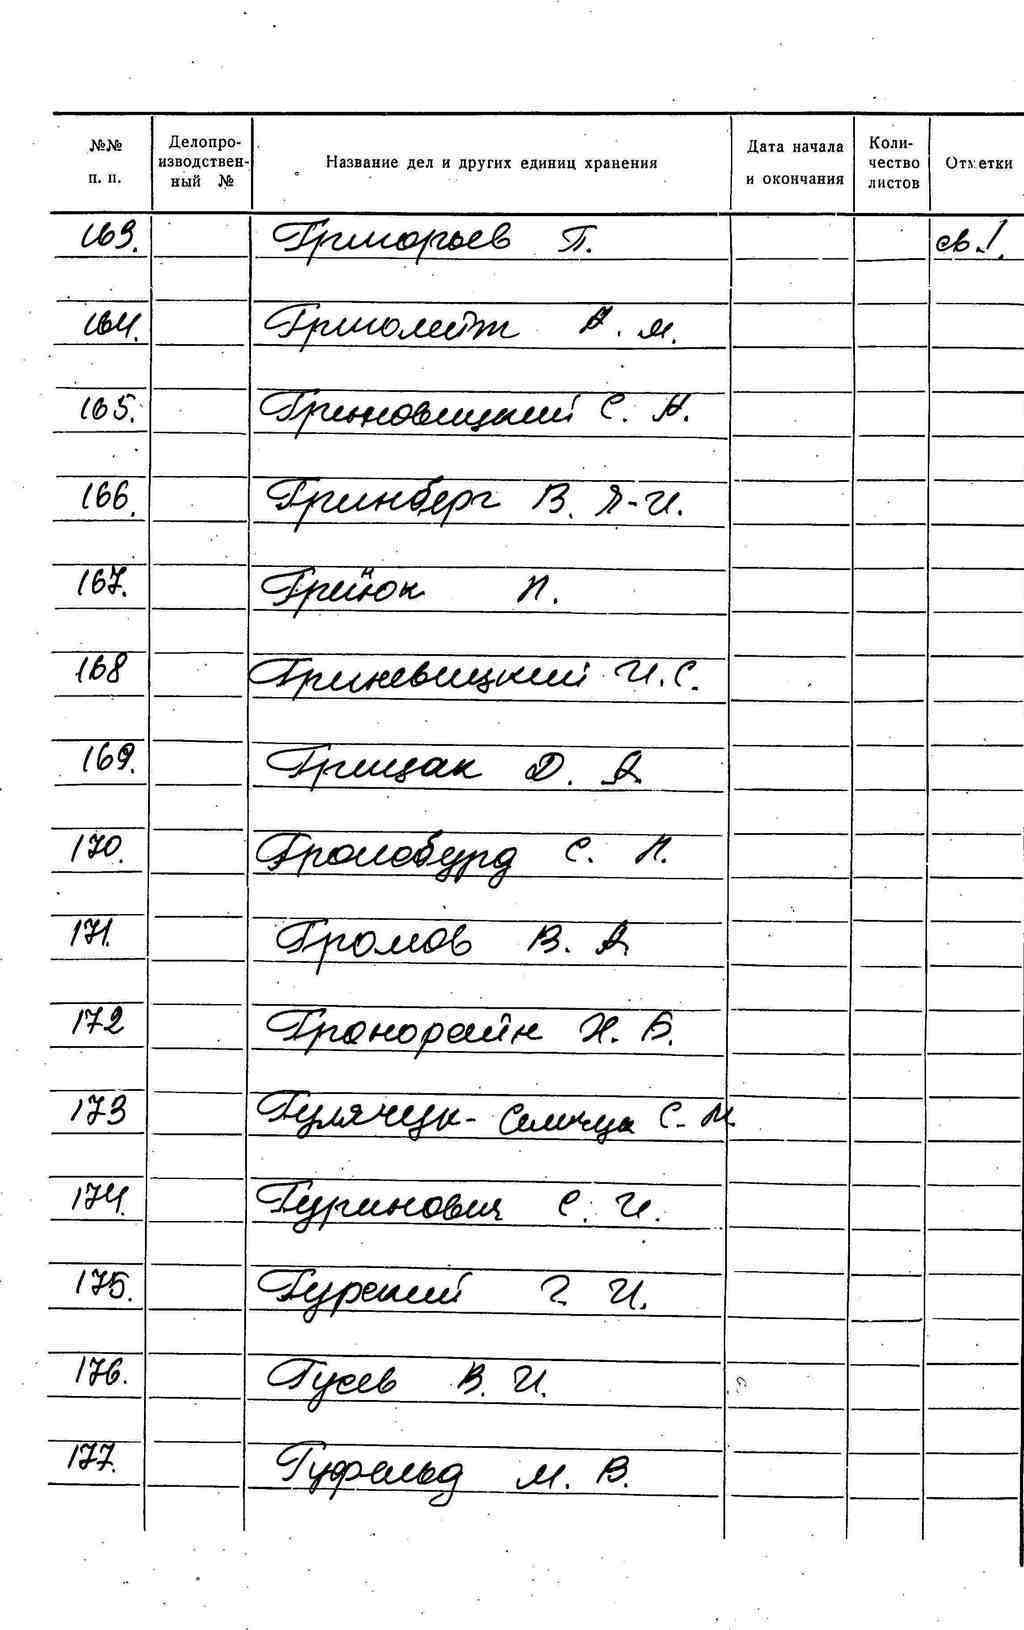 №№ п. п. Делопроизводственный № Название дел и других единиц хранения Дата начала и окончания Количество листов Отметки
163. Григорьев П. св.1.
164. А. М.
165. Гриновицкий С. А.
166. Гринберг В. Я-И.
167. П.
168 Гриневицкий И.С.
169. Грицак Д. А.
170. С. П.
171. Громов В. А.
172 Б.
173 С. М.
174. Гуринович С. И.
175. Гурский Г. И.
176. Гусев В. И.
177. Гуфельд М. В.